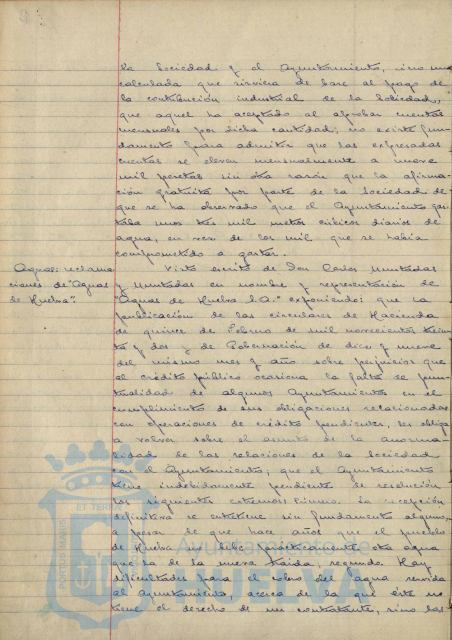 la Sociedad y el Ayuntamiento, sino una
calculada que sirviera de base al pago de
la contribución industrial de la Sociedad,
que aquel ha aceptado al aprobar cuentas
mensuales por dicha cantidad; no existe fun-
damento para admitir que las expresadas
cuentas se eleven mensualmente a nueve
mil pesetas sin otra razón que la afirma-
ción gratuita por parte de la Sociedad de
que se ha observado que el Ayuntamiento gas-
taba unos tres mil metros cúbicos diarios de
agua, en vez de los mil que se había
comprometido a gastar.
Aguas: reclama
ciones de "Aguas
de Huelva".
Visto escrito de Don Carlos Muntadas
y Muntadas en nombre y representación de
"Aguas de Huelva S.A." exponiendo: que la
publicación de las circulares de Hacienda
de quince de Febrero de mil novecientos trein-
ta y dos y de Gobernación de diez y nueve
del mismo mes y año sobre perjuicios que
al crédito público ocasiona la falta de pun-
tualidad de algunos Ayuntamientos en el
cumplimiento de sus obligaciones relacionadas
con operaciones de crédito pendientes, les obliga
a volver sobre el asunto de la anorma-
lidad de las relaciones de la Sociedad
con el Ayuntamiento; que el Ayuntamiento
tiene indebidamente pendiente de resolución
los siguientes extremos: Primero. La recepción
definitiva se entretiene sin fundamento alguno,
a pesar de que hace años que el pueblo
de Huelva no bebe prácticamente otra agua
que la de la nueva traída; segundo. Hay
dificultades para el cobro del agua servida
al Ayuntamiento, acerca de la que éste no
tiene el derecho de un contratante, sino las
ET TERRA
PORTUS MARIS
Ayuntamiento de
HUELVA